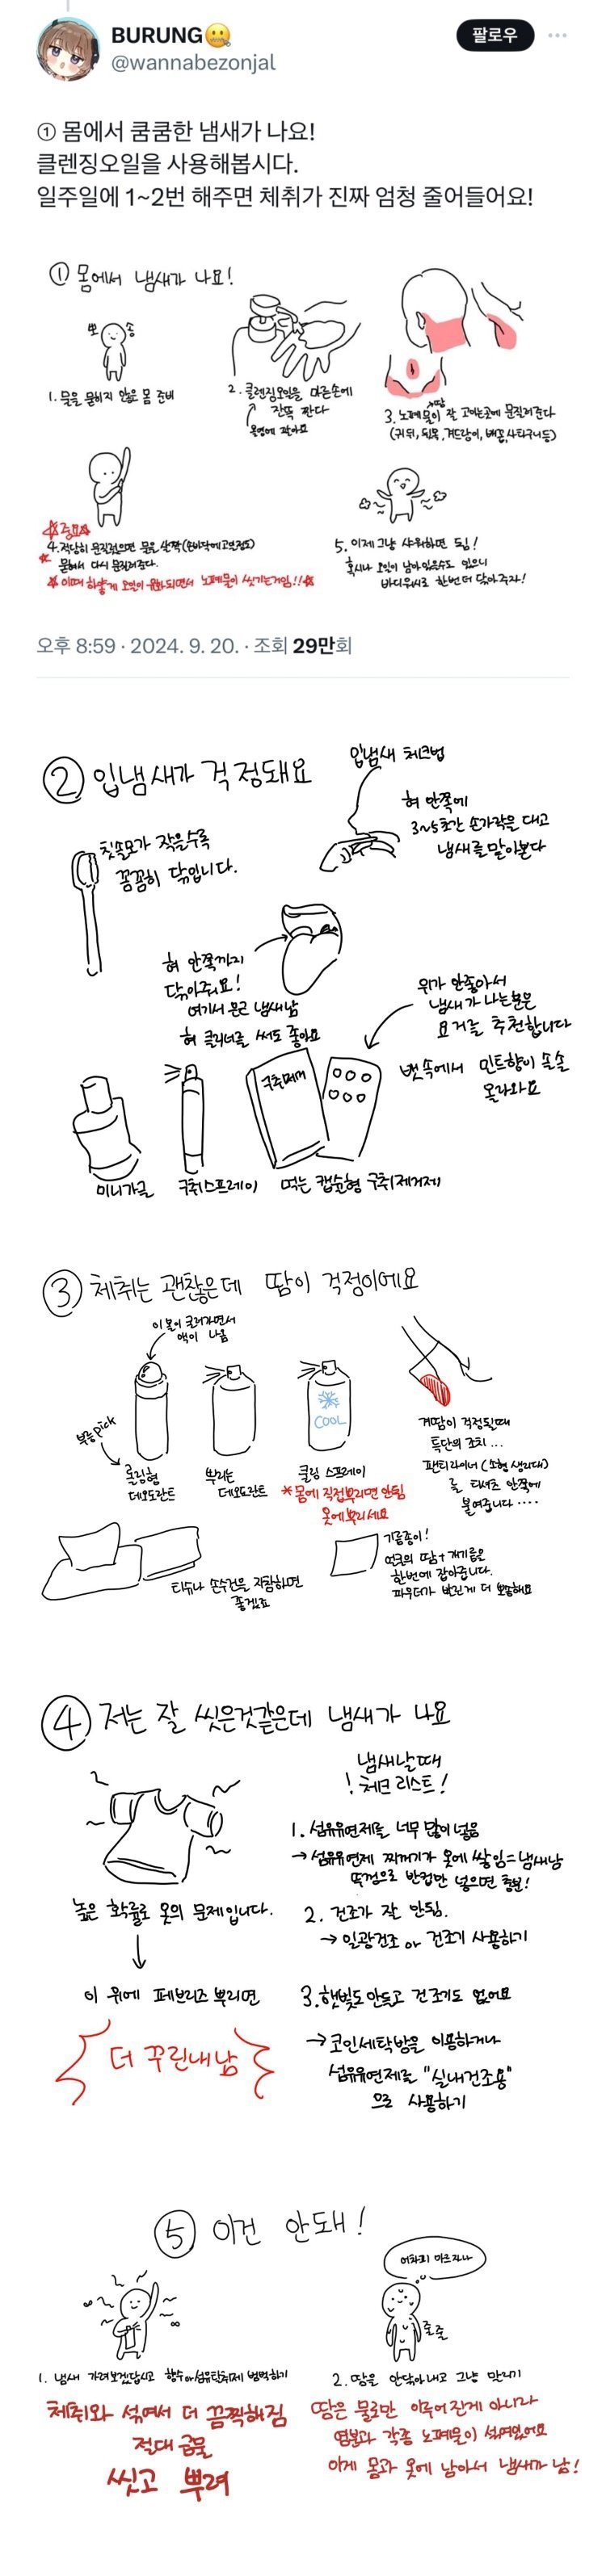 BURUNG
@wannabezonjal
팔로우
① 몸에서 쿰쿰한 냄새가 나요!
클렌징오일을 사용해봅시다.
일주일에 1~2번 해주면 체취가 진짜 엄청 줄어들어요!
① 몸에서 냄새가 나요!
뽀 송
1. 물을 묻히지 않은 몸 준비
2. 클렌징오일을 마른손에
잔뜩 짠다
올영에 많아요
3. 노폐물이 잘 고이는곳에 문질러준다
땀
(귀 뒤, 뒷목, 겨드랑이, 배꼽, 사타구니 등)
☆중요☆
4. 적당히 문질렀으면 물을 살짝(손바닥에 고인정도)
묻혀서 다시 문질러준다.
☆ 이때 하얗게 오일이 유화되면서 노폐물이 씻기는거임!!☆
5. 이제 그냥 샤워하면 됨!
혹시나 오일이 남아있을수도 있으니
바디워시로 한번 더 닦아주자!
오후 8:59 · 2024. 9. 20. · 조회 29만회
② 입냄새가 걱정돼요
입냄새 체크법
혀 안쪽에
3~5초간 손가락을 대고
냄새를 맡아본다
칫솔모가 작을수록
꼼꼼히 닦입니다.
혀 안쪽까지
닦아주세요!
여기서 은근 냄새남
혀 클리너를 써도 좋아요
위가 안좋아서
냄새가 나는분은
요거를 추천합니다
뱃속에서 민트향이 솔솔
올라와요
구취제거
미니가글
구취스프레이
먹는 캡슐형 구취제거제
③ 체취는 괜찮은데 땀이 걱정이에요
이 볼이 굴러가면서
액이 나옴
부릉pick
롤링형
데오도란트
뿌리는
데오도란트
COOL
쿨링 스프레이
*몸에 직접뿌리면 안됨
옷에뿌리세요
겨땀이 걱정될때
특단의 조치...
팬티라이너(소형 생리대)
를 티셔츠 안쪽에
붙여줍니다....
티슈나 손수건을 지참하면
좋겠죠
기름종이!
얼굴의 땀+개기름을
한번에 잡아줍니다.
파우더가 발린게 더 뽀송해요
④ 저는 잘 씻은것같은데 냄새가 나요
냄새날때
! 체크 리스트!
1. 섬유유연제를 너무 많이 넣음
→ 섬유유연제 찌꺼기가 옷에 쌓임=냄새남
뚜껑으로 반컵만 넣으면 충분!
높은 확률로 옷의 문제입니다.
2. 건조가 잘 안됨.
→ 일광건조 or 건조기 사용하기
이 위에 페브리즈 뿌리면
더 꾸린내남
3. 햇빛도 안들고 건조기도 없어요
→ 코인세탁방을 이용하거나
섬유유연제를 "실내건조용"
으로 사용하기
⑤ 이건 안돼!
어차피 마르자나
줄줄
1. 냄새 가려보겠답시고 향수or섬유탈취제 범벅하기
체취와 섞여서 더 끔찍해짐
절대 금물
씻고 뿌려
2. 땀을 안닦아내고 그냥 말리기
땀은 물로만 이루어진게 아니라
염분과 각종 노폐물이 섞여있어요
이게 몸과 옷에 남아서 냄새가 남!